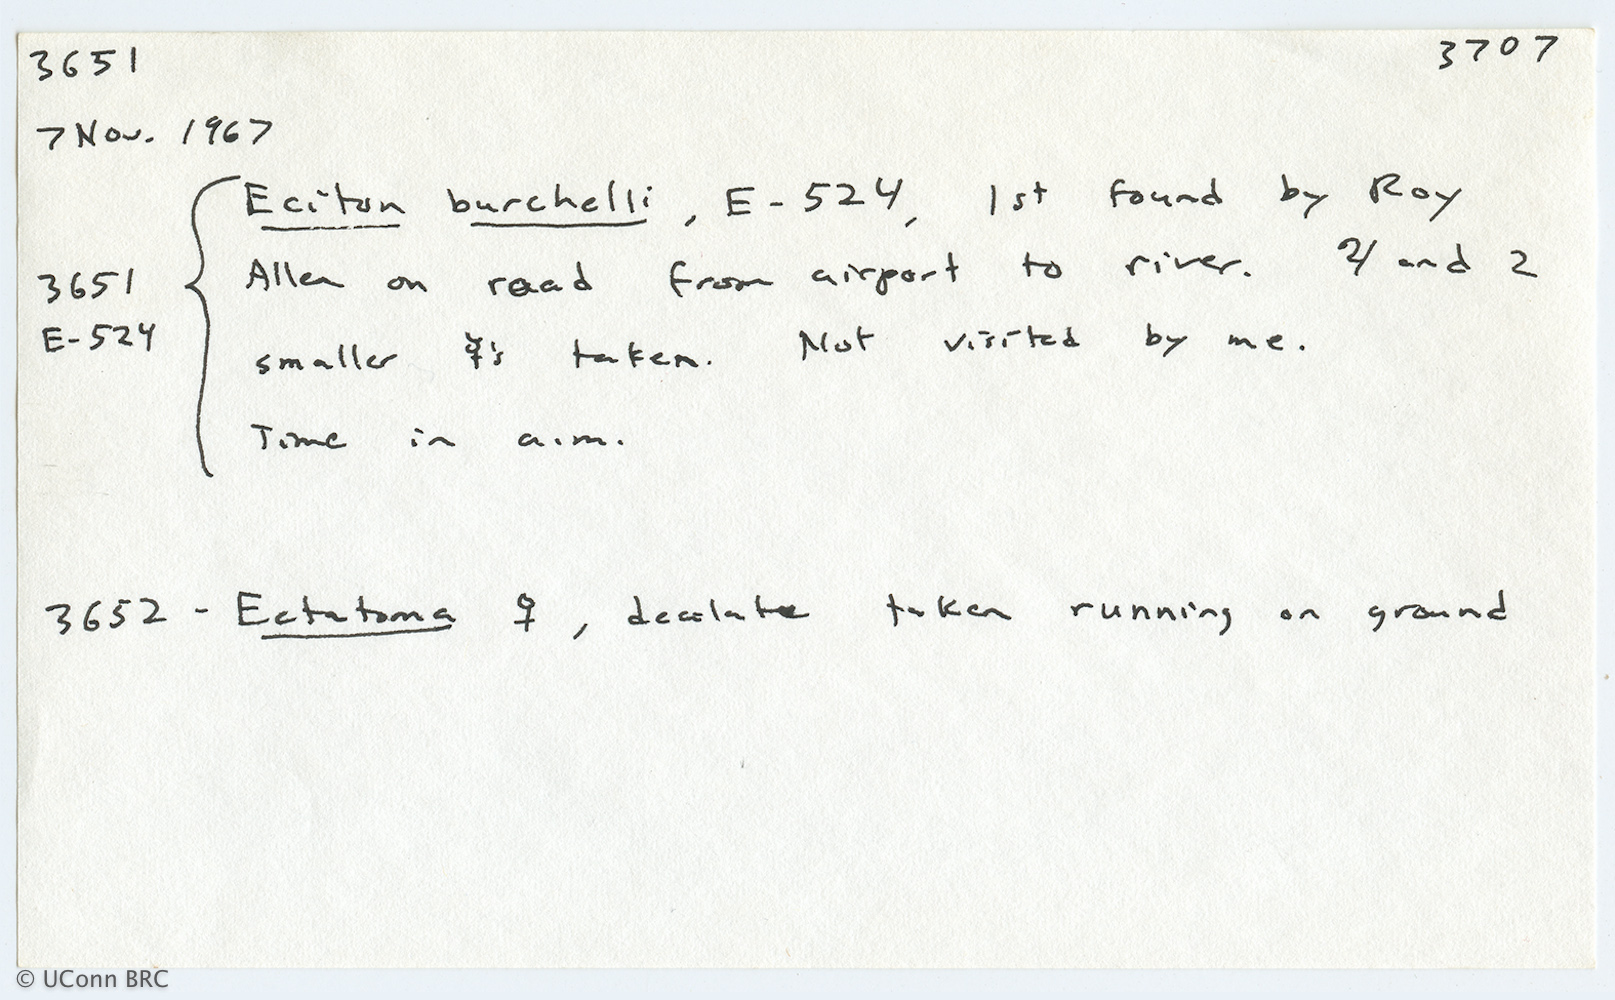 3651 3707
7 Nov. 1967
Eciton burchelli, E-524, 1st found by Roy
3651 Allen on road from airport to river. ♃ and 2
E-524 smaller ☿'s taken. Not visited by me.
Time in a.m.
3652 - Ectatoma ♀, dealate taken running on ground
© UConn BRC